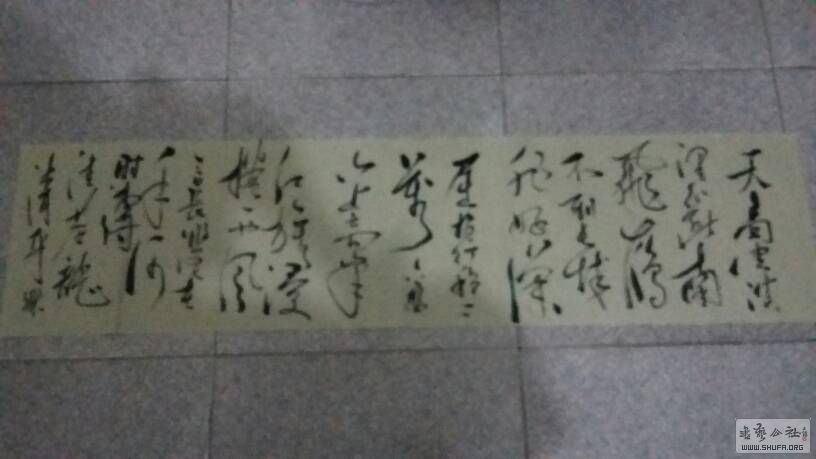 天高雲淡
望斷南
飛雁
不到長城
非好漢
屈指行程二
萬六盤
山上高峰
紅旗漫
捲西風
今日長纓在
手何
時縛
住蒼龍
清平樂
書藝公社
WWW.SHUFA.ORG